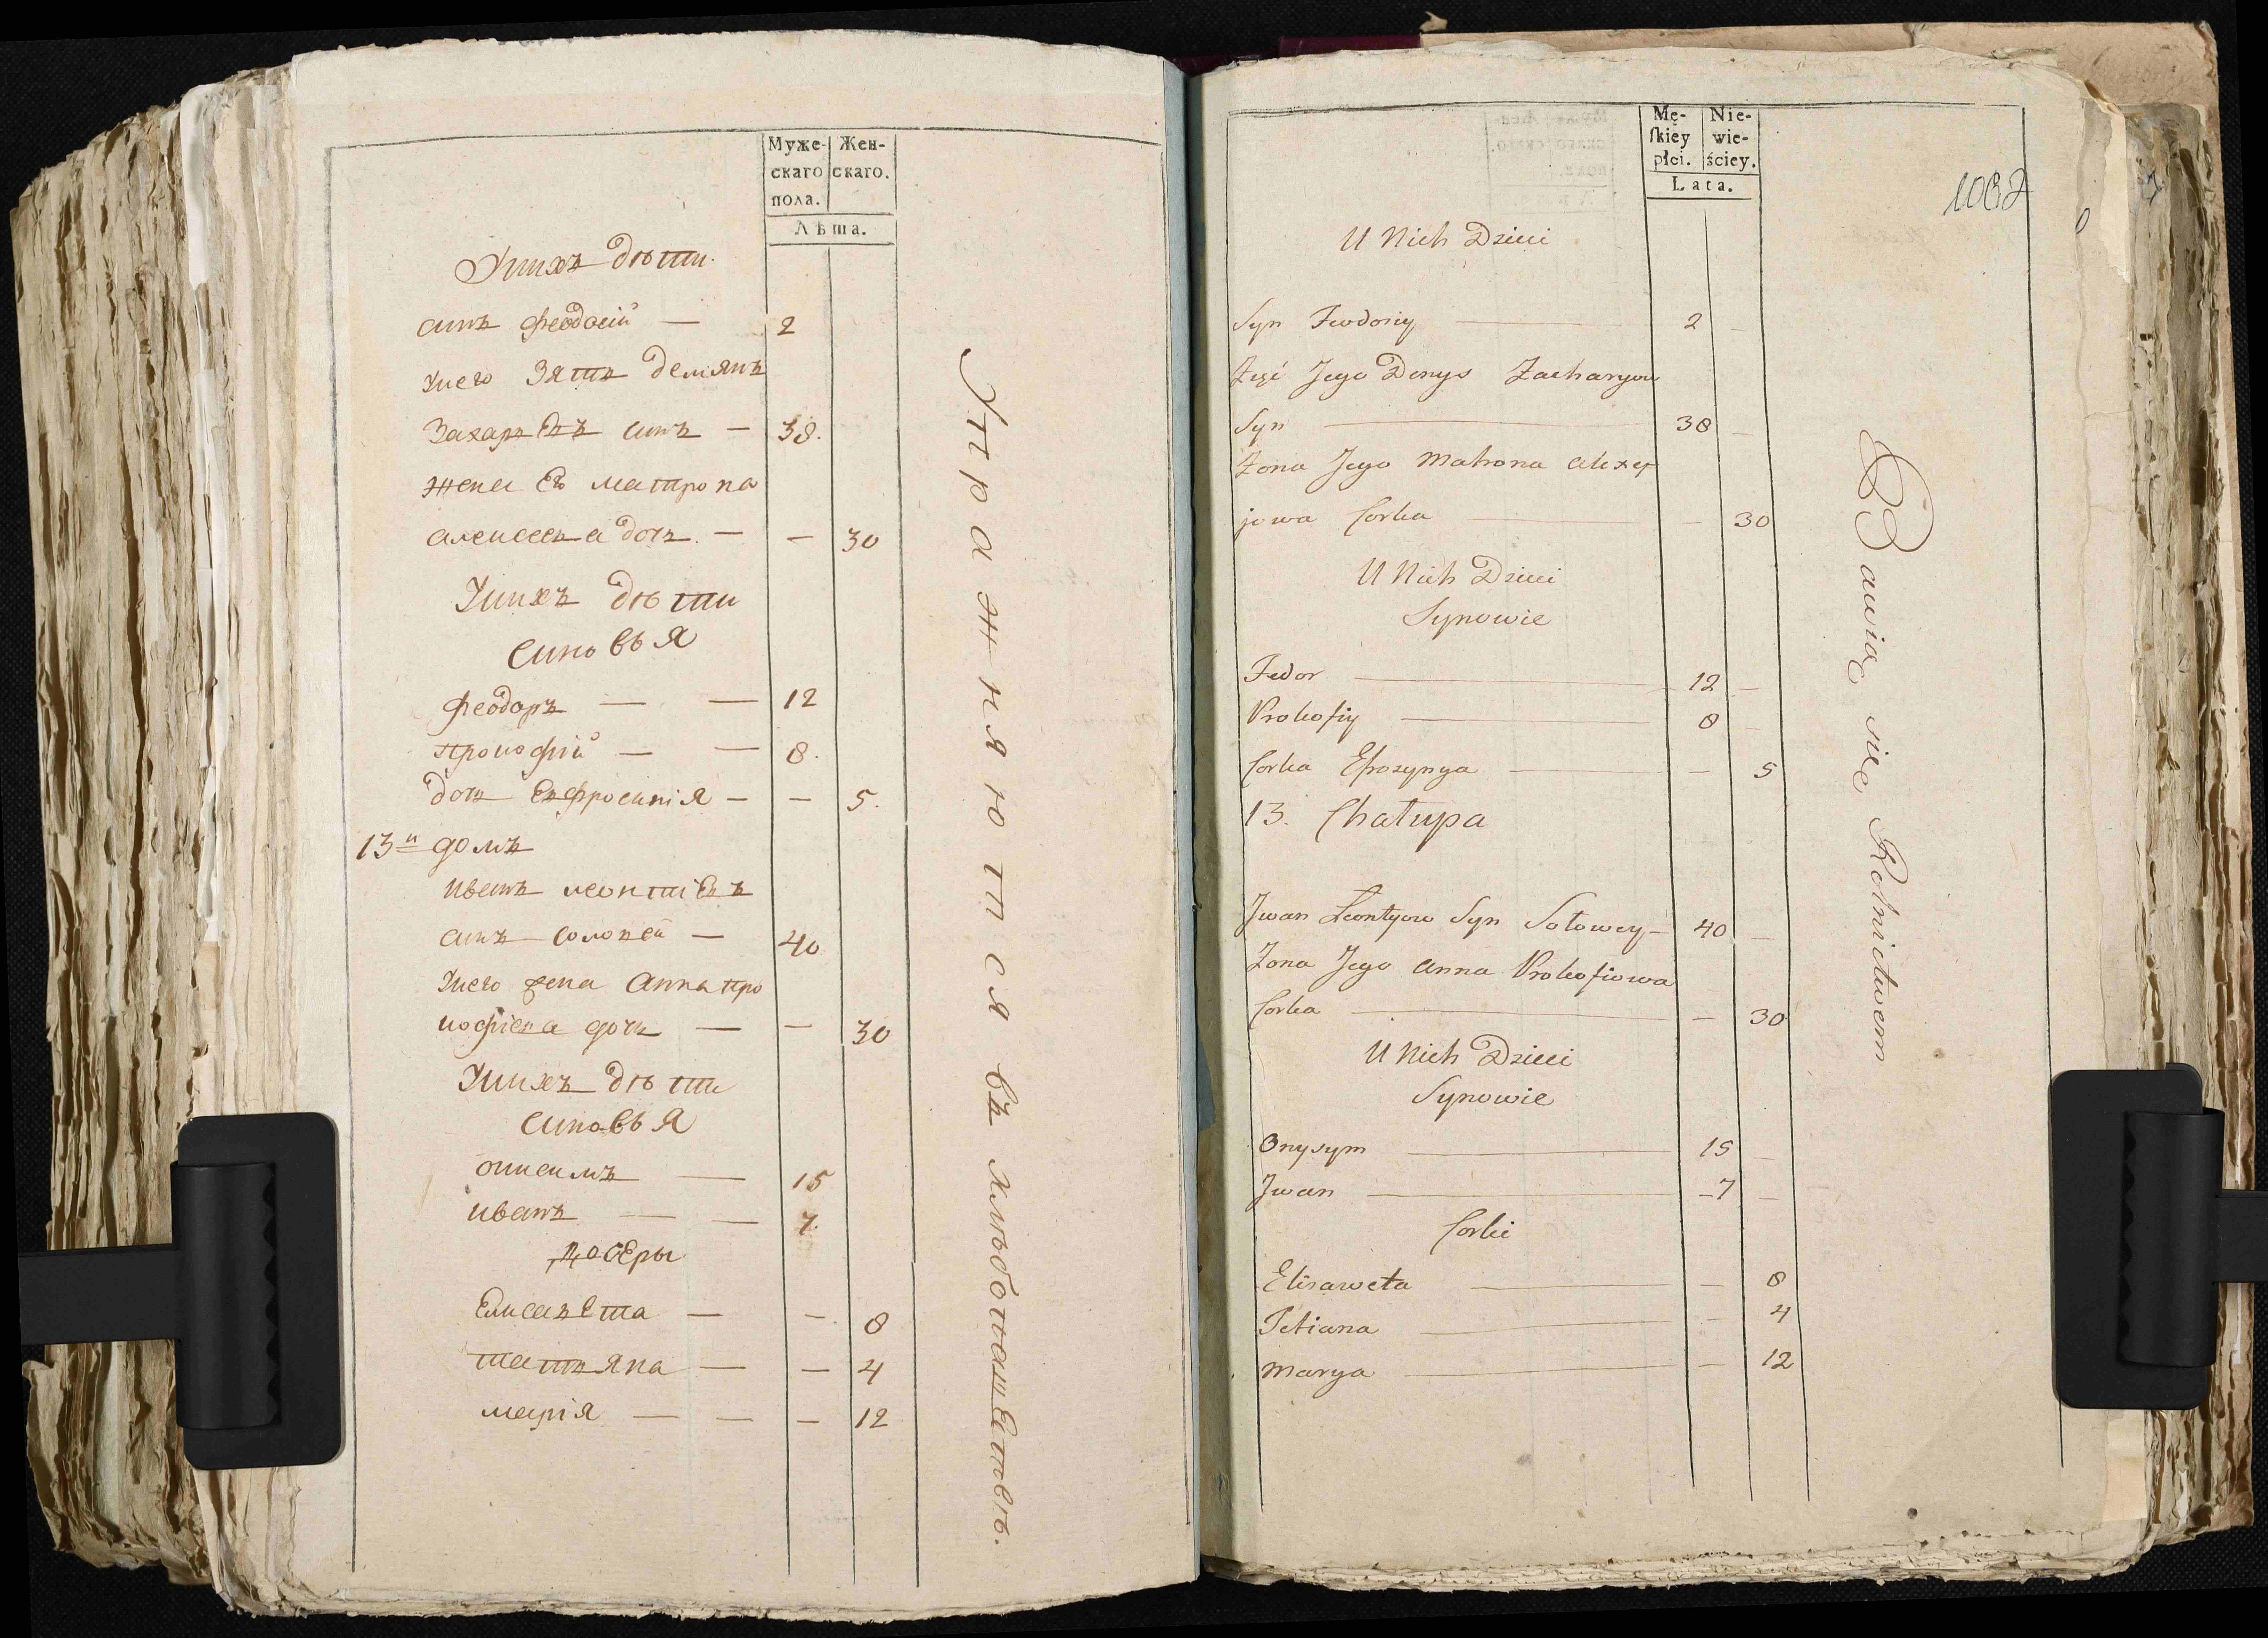 Муже-
скаго
пола.
Жен-
скаго.
Лѣта.
Унихъ дѣти
синъ Феодосій — 2
Унего Зять демянъ
Захарьевъ синъ — 38.
жена Его матрона
алексеева дочь. — — 30
Унихъ дѣти
синовья
Феодоръ — — 12
прокофій — — 8.
дочь Евфросинія — — 5.
13й домъ
иванъ леонтіевъ
синъ соловей — 40
Унего жена Анна про
кофіева дочь — — 30
Унихъ дѣти
синовья
онисимъ — 15
иванъ — — 7.
дочеры
Елисавета — — 8
татьяна — — 4
марія — — — 12
Упражняются въ хлѣбопашествѣ.
Mę-
skiey
płci.
Nie-
wie-
ściey.
Lata.
1032
U Nich Dzieci
Syn Feodosiy — 2 —
Zięć Jego Denys Zacharyow
Syn — 38 —
Żona Jego Matrona Alexe
jowa Corka — — 30
U Nich Dzieci
Synowie
Fedor — 12 —
Prokofiy — 8 —
Corka Efrozynya — — 5
13. Chałupa
Jwan Leontyow Syn Sołowey — 40 —
Żona Jego Anna Prokofiowa
Corka — — 30
U Nich Dzieci
Synowie
Onysym — 15 —
Jwan — 7 —
Corki
Elisaweta — — 8
Tetiana — — 4
Marya — — 12
Bawią się Rolnictwem